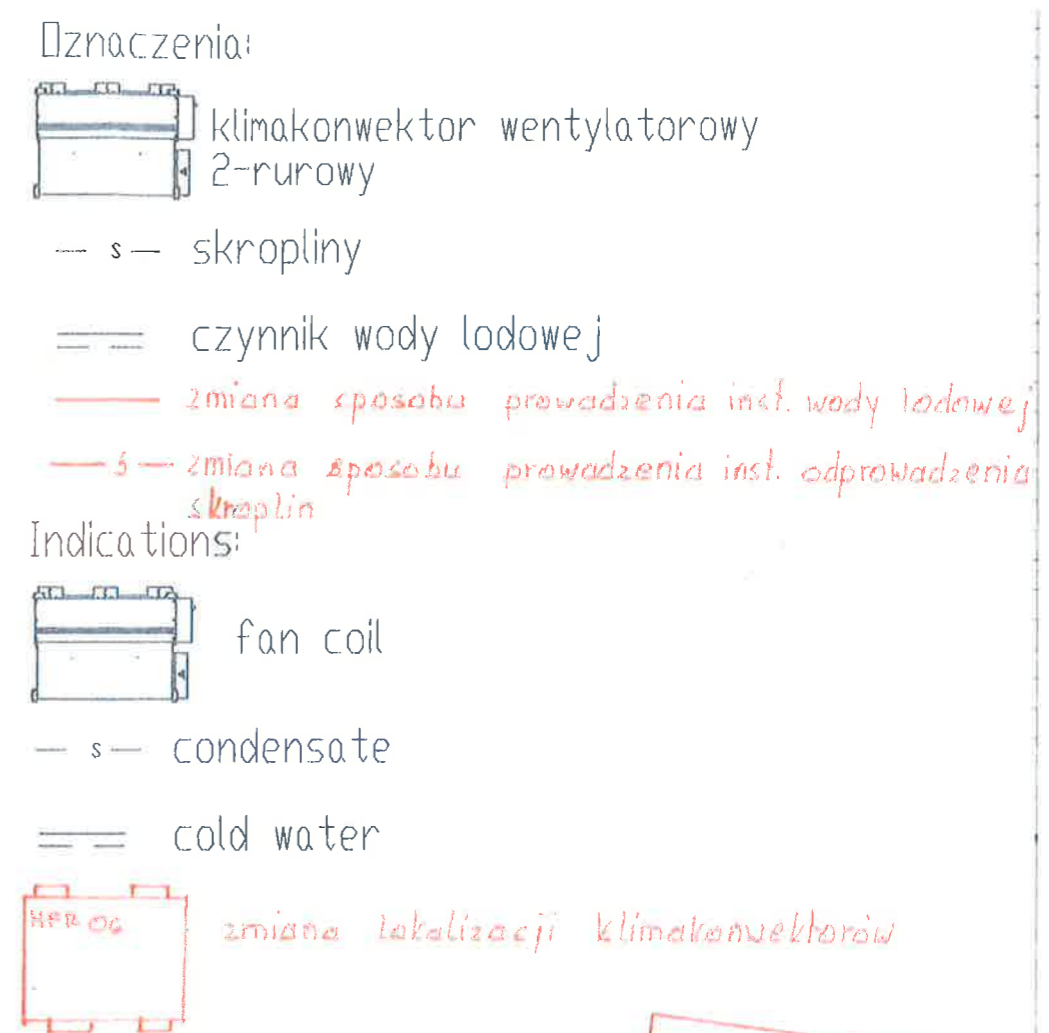 Oznaczenia:
klimakonwektor wentylatorowy
2-rurowy
s skropliny
czynnik wody lodowej
zmiana sposobu prowadzenia inst. wody lodowej
s zmiana sposobu prowadzenia inst. odprowadzenia
skroplin
Indications:
fan coil
s condensate
cold water
06
zmiana lokalizacji klimakonwektorów